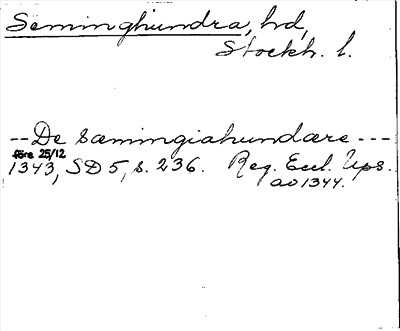 Seminghundra, hd,
Stockh. l.
-- De Sæmingiahundære ---
före 25/12
1343, SD 5, s. 236. Reg. Eccl. Ups.
ao 1344.